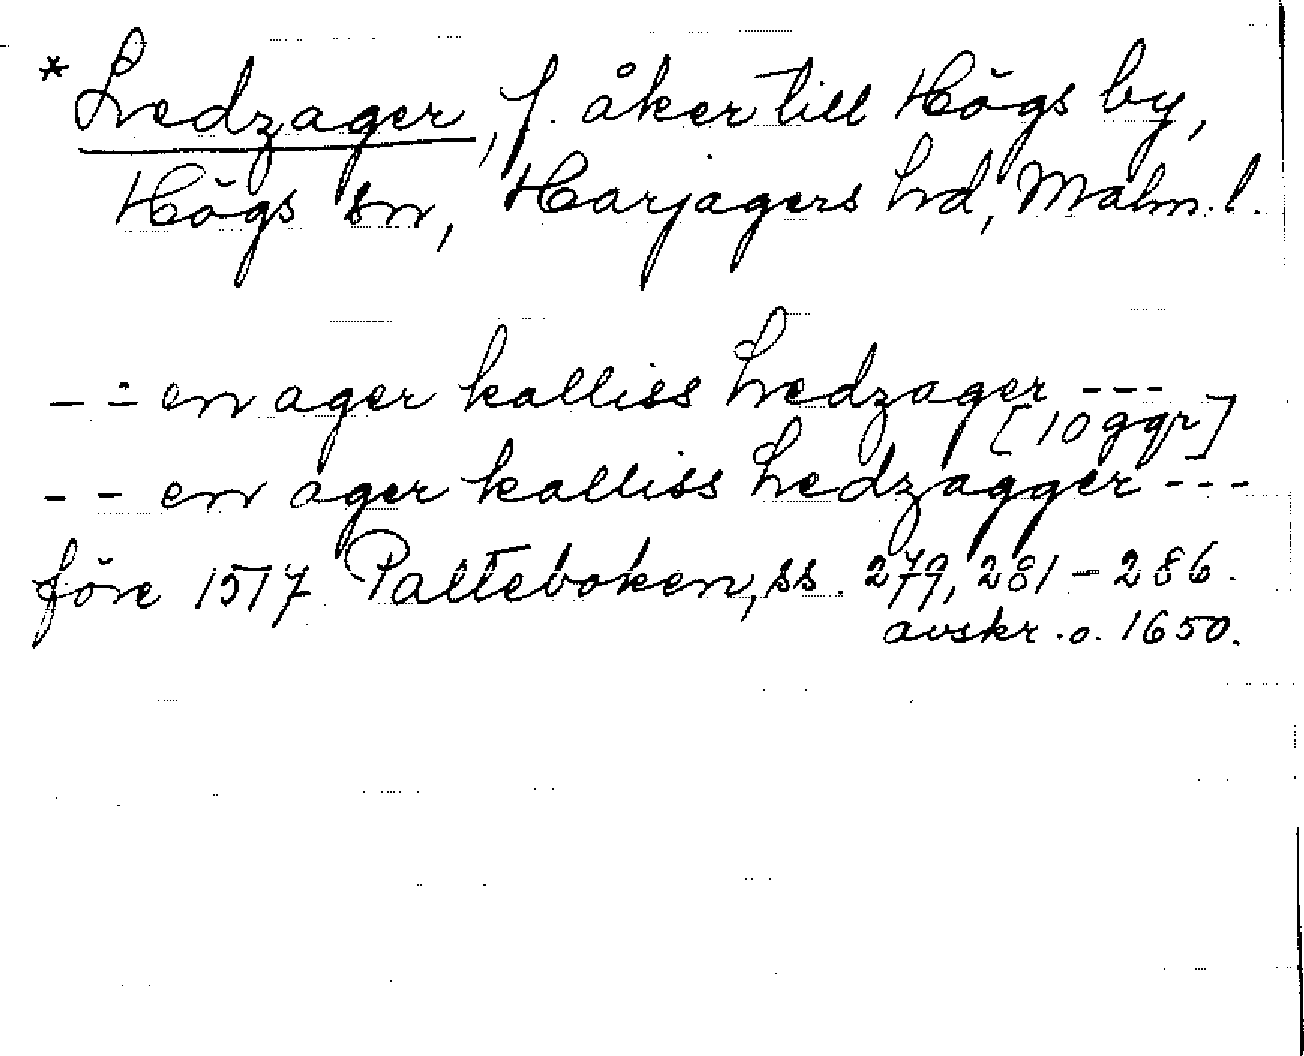 *Ledzager, f. åker till Högs by,
Högs sn, Harjagers hd, Malm. l.
- - en ager kalliss Ledzager - - -
[10 ggr]
- - en ager kalliss Ledzagger - - -
före 1517. Palteboken, ss. 279, 281 - 286.
avskr. o. 1650.